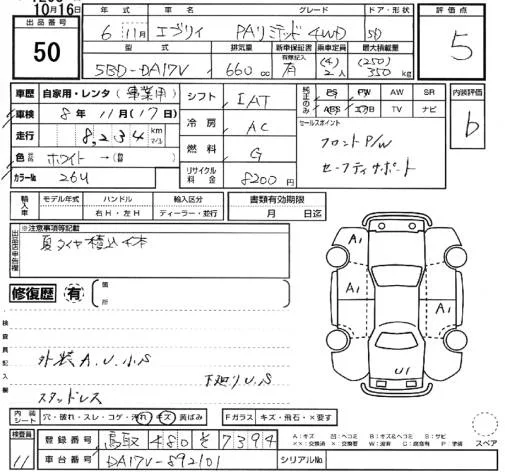 10月16日
出品番号
50
年式 車名 グレード ドア・形状
6 11月 エブリイ PAリミテッド 4WD 5D
型式 排気量 新車保証書 乗車定員 最大積載量
有無記入 (4) (250)
5BD-DA17V 660cc 有 2人 350kg
評価点
5
車歴 自家用・レンタ (事業用)
車検 8年 11月 (17日)
走行 8,234 km マイル
色 ホワイト→( )
カラーNo 26U
シフト IAT
冷房 AC
燃料 G
リサイクル料金 8200円
純正のみ PS PW AW SR
ABS エアB TV ナビ
セールスポイント
フロントP/W
セーフティサポート
内装評価
b
輸入車 モデル年式 ハンドル 輸入区分
年 右H・左H ディーラー・並行
書類有効期限
月 日迄
出品店申告欄
※注意事項等記載
夏タイヤ積込4本
修復歴 有 箇所
検査員記入欄
外装A.U.小S
下廻りU.S
スタッドレス
A1 A1 A1 U1
内装シート 穴・破れ・スレ・コゲ・汚れ・キズ・黄ばみ
Fガラス キズ・飛石・×要す
検査員
11
登録番号 鳥取 480 を 7394
車台番号 DA17V-892101
シリアルNo
A:キズ U:ヘコミ B:キズ&ヘコミ S:サビ
××:交換済 ×:要交換 W:波有 C:腐食有 P:要塗装
スペア